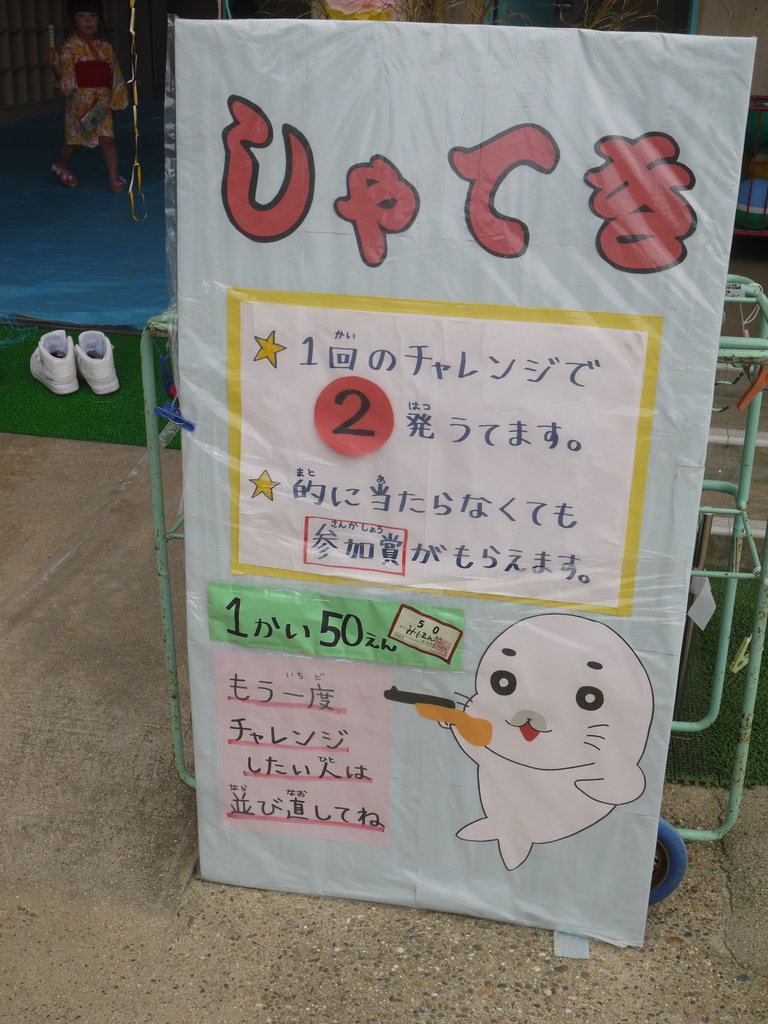 しゃてき
1回のチャレンジで
かい
2発うてます。
はつ
的に当たらなくても
まと あ
参加賞がもらえます。
さんかしょう
1かい50えん
50
もう一度
いちど
チャレンジ
したい人は
ひと
並び直してね
なら なお